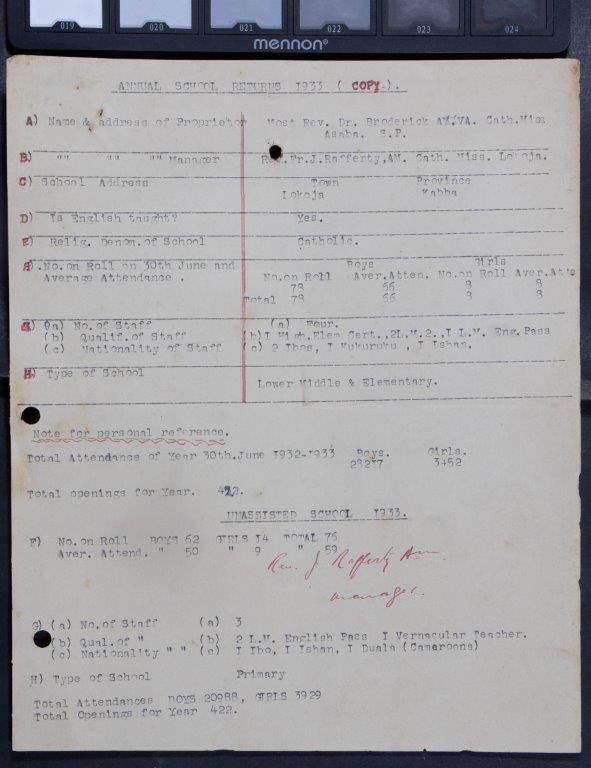 019 020 021 022 023 024
mennon®
ANNUAL SCHOOL RETURNS I933 ( COPY.).
A) Name & address of Proprietor Most Rev. Dr. Broderick Cath.Miss
Asaba. S.P.
B) "" "" "" Manager Rev.Fr.J.Rafferty,AM. Cath. Miss. Lokoja.
C) School Address Town Province
Lokoja Kabba
D) Is English taught? Yes.
E) Relig. Denom.of School Catholic.
.No.on Roll on 30th June and Boys Girls
Average Attendance . No.on Roll Aver.Atten. No.on Roll Aver.Atte
78 66 8 8
Total 78 66 8 8
(a) No.of Staff (a) Four.
(b) Qualif.of Staff (b)I High.Elem Cert.,2L.M.2.,I L.M. Eng.Pass
(c) Nationality of Staff (c) 2 Ibos, I Kukuruku , I Ishan.
H) Type of School
Lower Middle & Elementary.
Note for personal reference.
Total Attendance of Year 30th.June I932-I933 Boys. Girls.
28217 3452
Total openings for Year. 422.
UNASSISTED SCHOOL I933.
F) No.on Roll BOYS 62 GIRLS I4 TOTAL 76
Aver. Attend. " 50 " 9 " 59
Rev. J Rafferty
manager.
G) (a) No.of Staff (a) 3
(b) Qual.of " (b) 2 L.M. English Pass I Vernacular Teacher.
(c) Nationality " " (c) I Ibo, I Ishan, I Duala (Cameroons)
H) Type of School Primary
Total Attendances BOYS 20988, GIRLS 3929
Total Openings for Year 422.